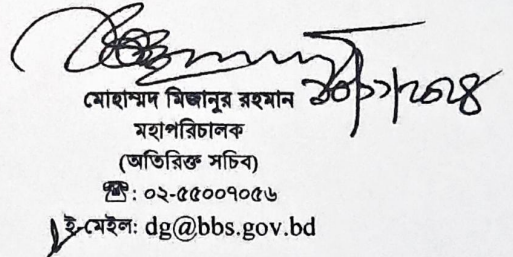 মোহাম্মদ মিজানুর রহমান
মহাপরিচালক
(অতিরিক্ত সচিব)
☎: ০২-৫৫০০৭০৫৬
ই-মেইল: dg@bbs.gov.bd